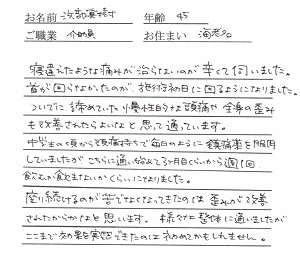 お名前 渋部真樹 年齢 45
ご職業 介助員 お住まい 海老名
寝違えたような痛みが治らないのが辛くて伺いました。
首が回らなかったのが、施術初日に回るようになりました。
ついでに、諦めていた慢性的な頭痛や全身の歪み
も改善されたらよいなと思って通っています。
中学生の頃から頭痛持ちで毎日のように鎮痛薬を服用
していましたが こちらに通い始めて3ヶ月くらいから週1回
飲むか飲まないかくらいになりました。
座り続けるのが苦でなくなってきたのは 歪みが改善
されたからかなと思います。 様々な整体に通いましたが
ここまで効果を実感できたのは初めてかもしれません。